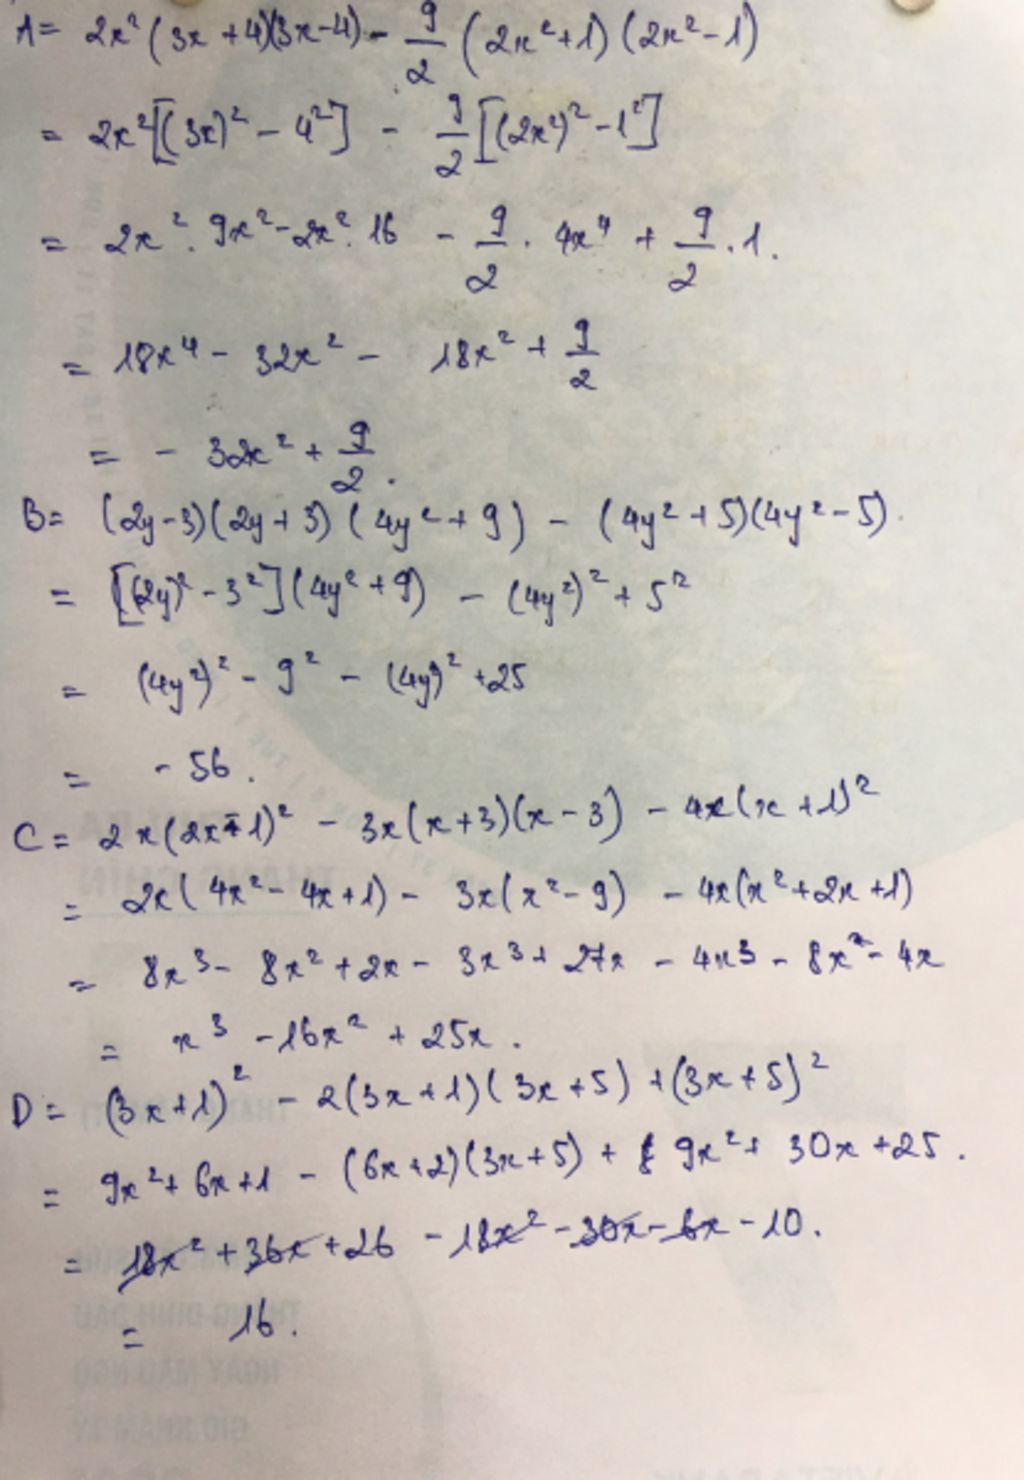 A = 2x²(3x+4)(3x-4) - 9/2 (2x²+1)(2x²-1)
= 2x²[(3x)² - 4²] - 9/2 [(2x²)² - 1²]
= 2x² . 9x² - 2x² . 16 - 9/2 . 4x⁴ + 9/2 . 1.
= 18x⁴ - 32x² - 18x² + 9/2
= - 32x² + 9/2 .
B = (2y-3)(2y+3)(4y²+9) - (4y²+5)(4y²-5).
= [(2y)² - 3²](4y²+9) - (4y²)² + 5²
= (4y²)² - 9² - (4y²)² + 25
= - 56 .
C = 2x(2x-1)² - 3x(x+3)(x-3) - 4x(x+1)²
= 2x(4x² - 4x + 1) - 3x(x² - 9) - 4x(x² + 2x + 1)
= 8x³ - 8x² + 2x - 3x³ + 27x - 4x³ - 8x² - 4x
= x³ - 16x² + 25x .
D = (3x+1)² - 2(3x+1)(3x+5) + (3x+5)²
= 9x² + 6x + 1 - (6x+2)(3x+5) + 9x² + 30x + 25 .
= 18x² + 36x + 26 - 18x² - 30x - 6x - 10.
= 16.